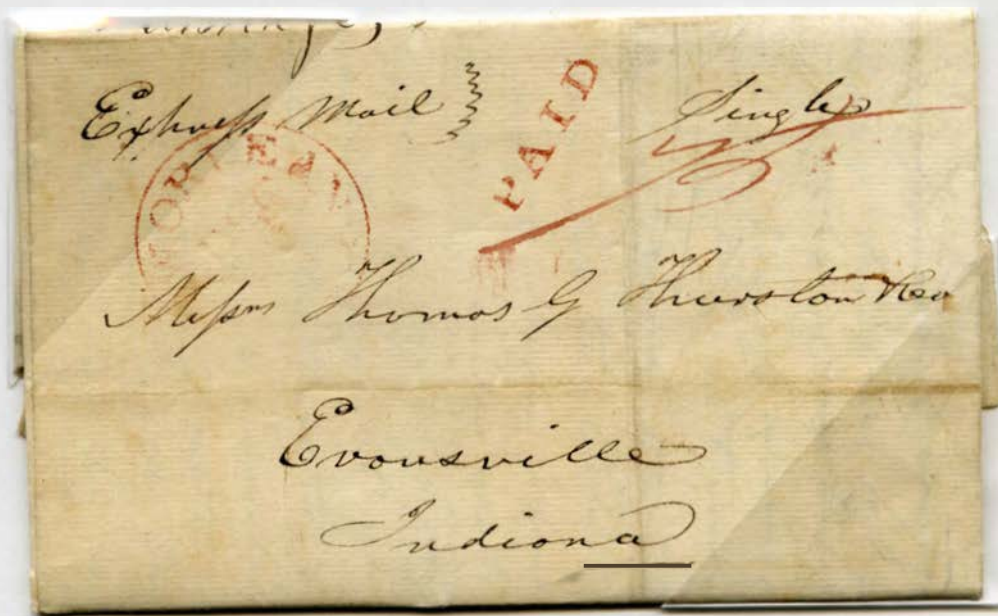 Express Mail
Single
PAID
Messrs Thomas G Thurston & Co
Evansville
Indiana